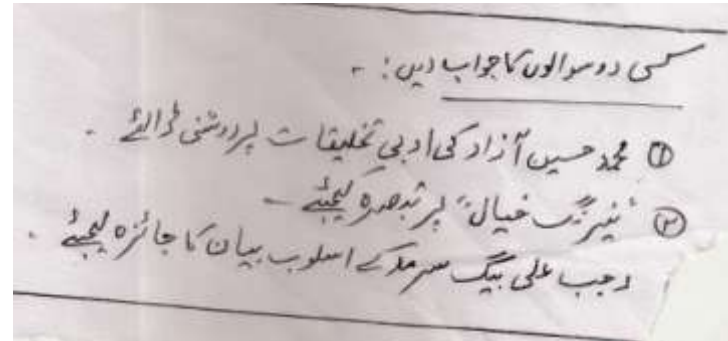 کسی دو سوالوں کا جواب دیں : -
① محمد حسین آزاد کی ادبی تخلیقات پر روشنی ڈالئے -
② "نیرنگ خیال" پر تبصرہ کیجئے -
رجب علی بیگ سرور کے اسلوب بیان کا جائزہ لیجئے -